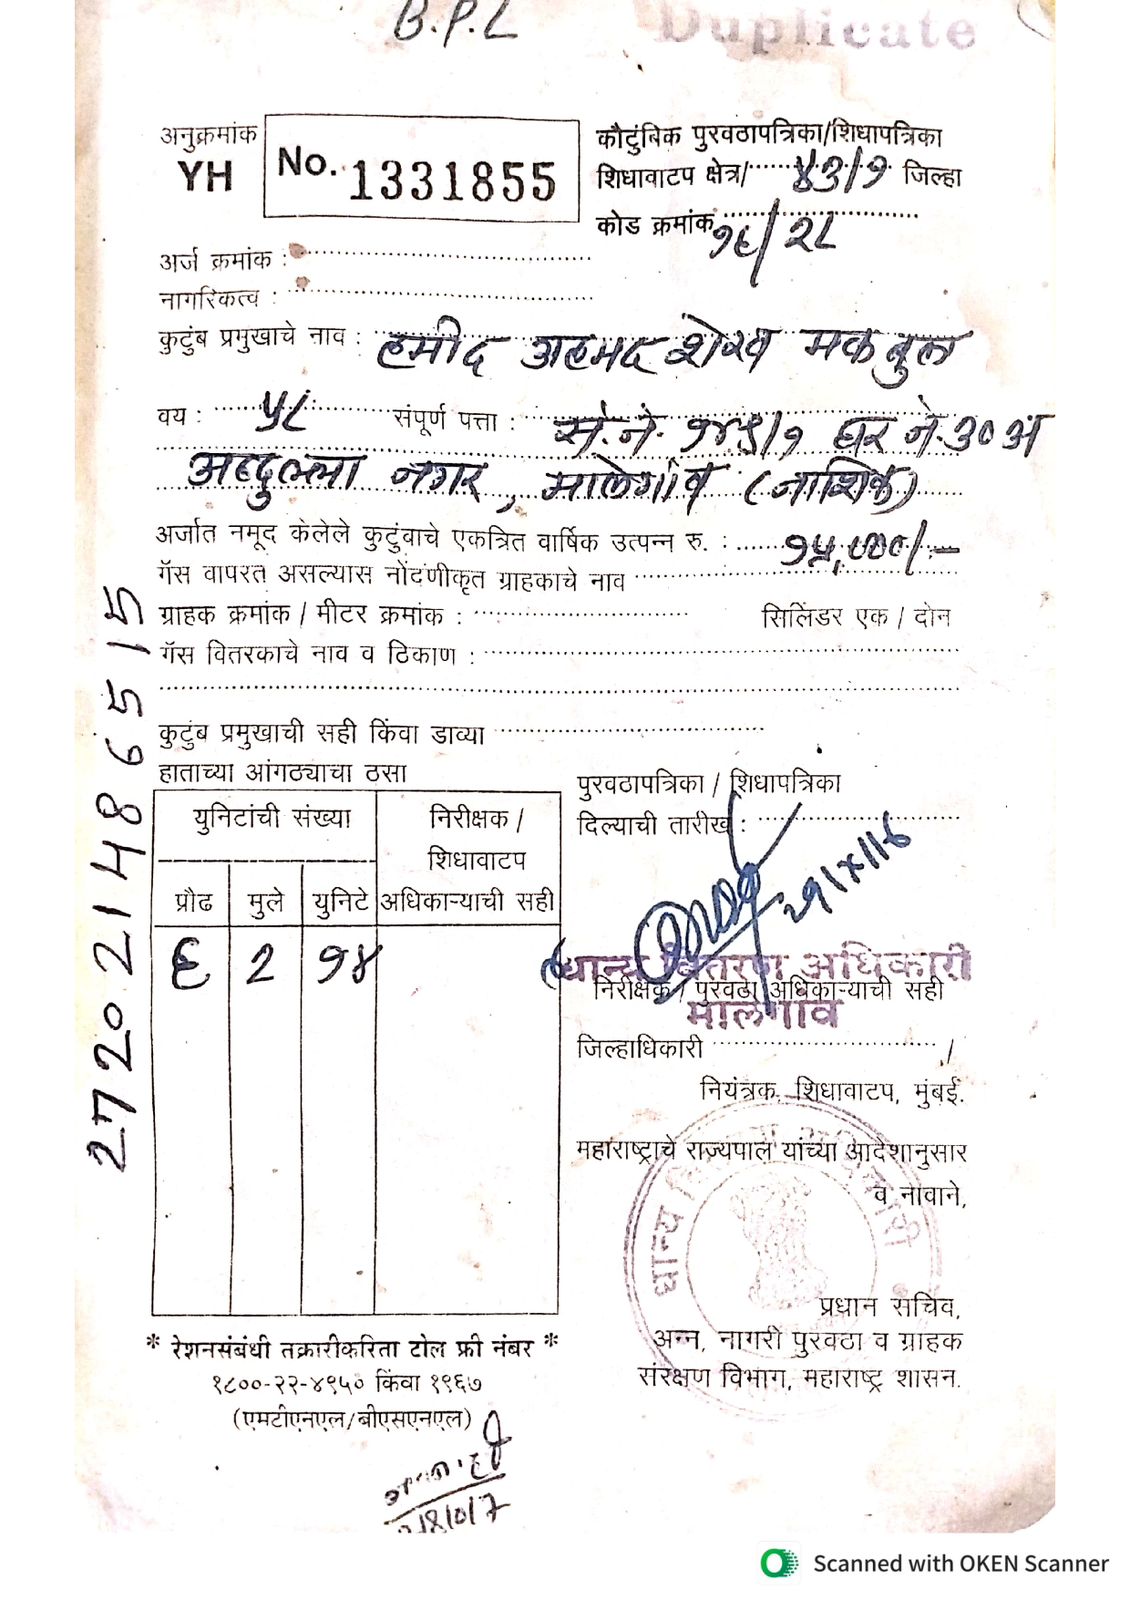 B.P.L
Duplicate
अनुक्रमांक
YH
No. 1331855
कौटुंबिक पुरवठापत्रिका/शिधापत्रिका
शिधावाटप क्षेत्र/ ४३/१ जिल्हा
कोड क्रमांक १६/२८
अर्ज क्रमांक :
नागरिकत्व :
कुटुंब प्रमुखाचे नाव : हमीद अहमद शेख मकबुल
वय : ५८ संपूर्ण पत्ता : स.नं. १४९/१ घर नं. ३० अ
अब्दुल्ला नगर, मालेगांव (नाशिक)
अर्जात नमूद केलेले कुटुंवाचे एकत्रित वार्षिक उत्पन्न रु. : १५,०००/-
गॅस वापरत असल्यास नोंदणीकृत ग्राहकाचे नाव
ग्राहक क्रमांक / मीटर क्रमांक : सिलिंडर एक / दोन
गॅस वितरकाचे नाव व ठिकाण :
कुटुंब प्रमुखाची सही किंवा डाव्या
हाताच्या आंगठ्याचा ठसा
272021486515
युनिटांची संख्या
निरीक्षक /
शिधावाटप
अधिकाऱ्याची सही
प्रौढ मुले युनिटे
६ 2 १४
पुरवठापत्रिका / शिधापत्रिका
दिल्याची तारीख :
धान्य वितरण अधिकारी
निरीक्षक / पुरवठा अधिकाऱ्याची सही
मालेगांव
जिल्हाधिकारी /
नियंत्रक, शिधावाटप, मुंबई.
महाराष्ट्राचे राज्यपाल यांच्या आदेशानुसार
व नावाने,
प्रधान सचिव,
अन्न, नागरी पुरवठा व ग्राहक
संरक्षण विभाग, महाराष्ट्र शासन.
* रेशनसंबंधी तक्रारीकरिता टोल फ्री नंबर *
१८००-२२-४९५० किंवा १९६७
(एमटीएनएल/बीएसएनएल)
Scanned with OKEN Scanner